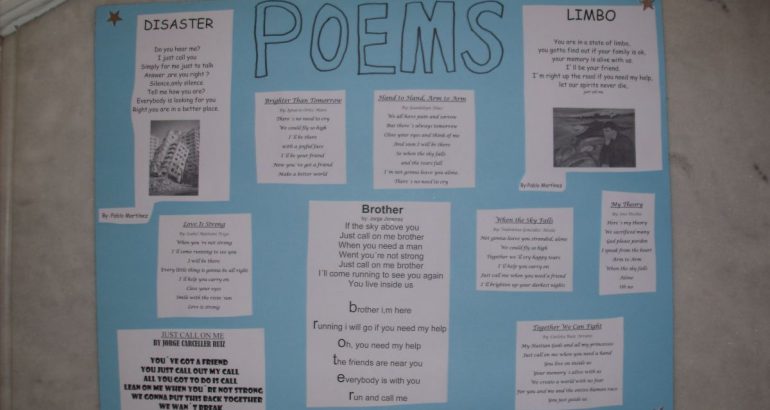 POEMS
DISASTER
Do you hear me?
I just call you
Simply for me just to talk
Answer are you right ?
Silence,only silence
Tell me how are you?
Everybody is looking for you
Right,you are in a better place.
By :Pablo Martínez
Brighter Than Tomorrow
There´s no need to cry
We could fly so high
I´ll be there
with a joyful face
I´ll be your friend
Now you´ve got a friend
Make a better world
Hand to Hand, Arm to Arm
We all have pain and sorrow
But there´s always tomorrow
Close your eyes and think of me
And soon I will be there
So when the sky falls
and the tears fall
I´m not gonna leave you alone
There´s no need to cry
LIMBO
You are in a state of limbo,
you gotta find out if your family is ok,
your memory is alive with us.
I´ll be your friend,
I´m right up the road if you need my help,
let our spirits never die,
just call me.
By:Pablo Martínez
Love Is Strong
When you´re not strong
I´ll come running to see you
I will be there
Every little thing is gonna be all right
I´ll help you carry on
Close your eyes
Smile with the risin´sun
Love is strong
Brother
by: Jorge
If the sky above you
Just call on me brother
When you need a man
Went you´re not strong
Just call on me brother
I´ll come running to see you again
You live inside us
brother i,m here
running i will go if you need my help
Oh, you need my help
the friends are near you
Everybody is with you
run and call me
When the Sky Falls
Not gonna leave you stranded, alone
We could fly so high
Together we´ll cry happy tears
I´ll help you carry on
Just call me when you need a friend
I´ll brighten up your darkest nights
My Theory
Here´s my theory
We sacrificed many
God please pardon
I speak from the heart
Arm to Arm
When the sky falls
Alone
Oh no
JUST CALL ON ME
BY JORGE CARCELLER RUIZ
YOU´VE GOT A FRIEND
YOU JUST CALL OUT MY CALL
ALL YOU GOT TO DO IS CALL
LEAN ON ME WHEN YOU´RE NOT STRONG
WE GONNA PUT THIS BACK TOGETHER
WE WAN´T BREAK
Together We Can Fight
My Haitian Gods and all my princesses
Just call on me when you need a hand
You live on inside us
Your memory´s alive with us
We create a world with no fear
For you and me and the entire human race
You just guide us